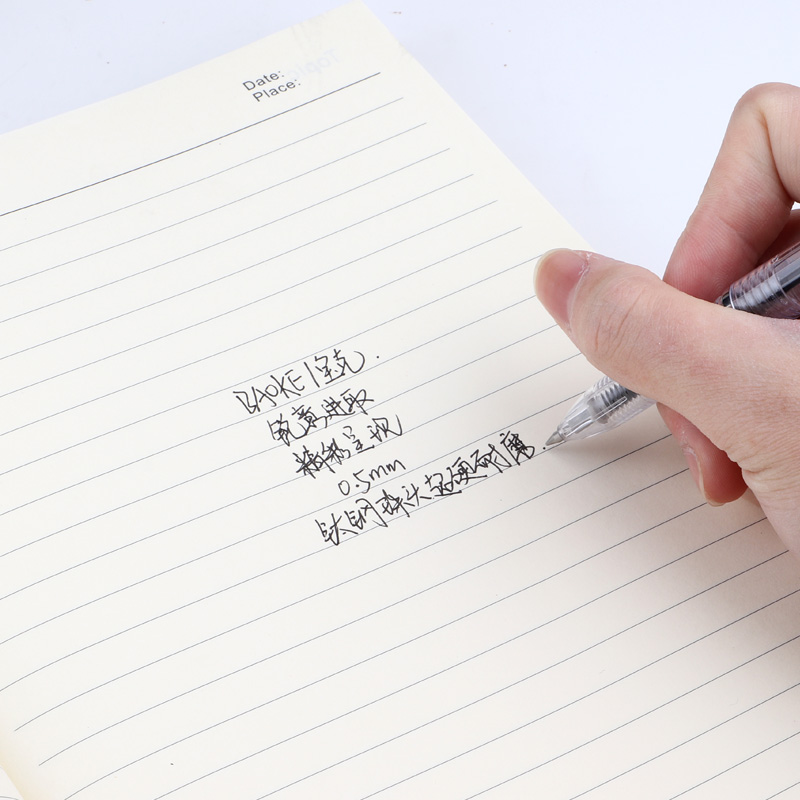 Date:
Place:
BAOKE 1宝克.
锐意进取
精彩呈现
0.5mm
钛钢珠头超硬耐磨.